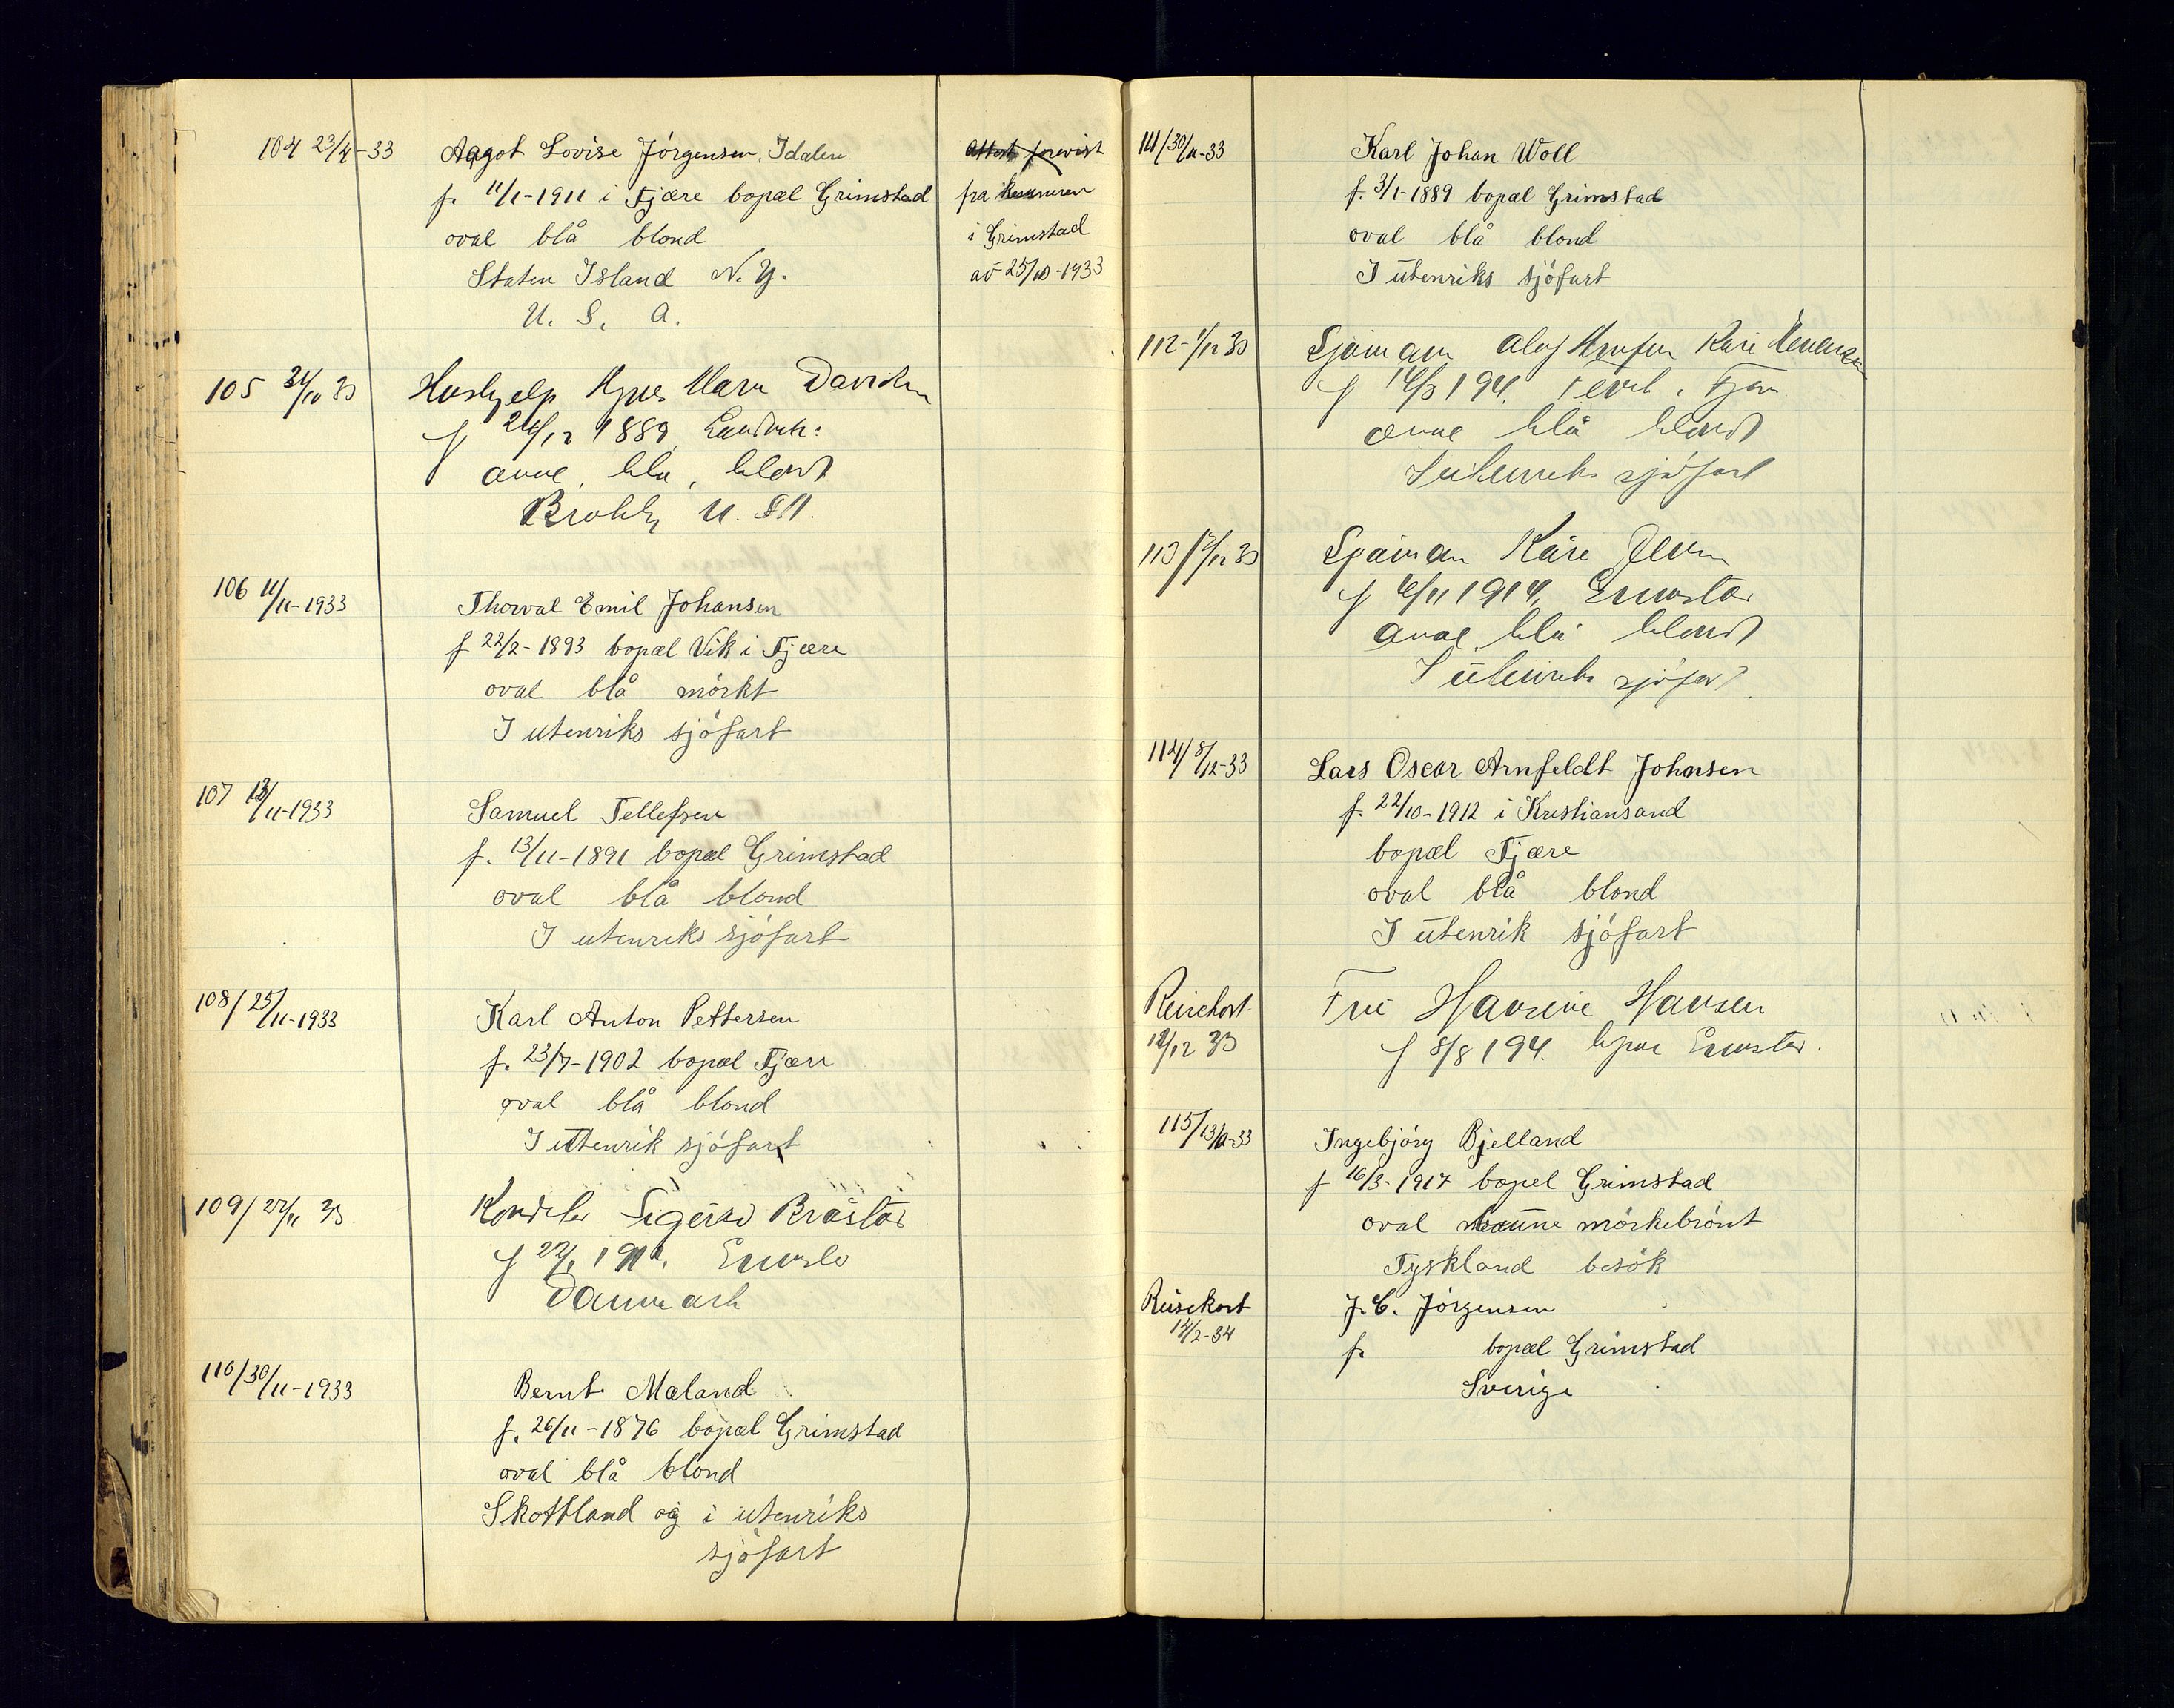 104 23/4-33
Aagot Lovise Jörgensen, Idalen
f. 11/1-1911 i Fjære bopæl Grimstad
oval blå blond
Staten Island N.Y.
U. S. A.
Attest forevist
fra
i Grimstad
av 25/10-1933
105 31/10 33
Hushjelp Davidsen
f 24/12 1889
blå, blond
U.S.A.
106 11/11-1933
Thorval Emil Johansen
f 22/2-1893 bopæl Vik i Fjære
oval blå mörkt
I utenriks sjöfart
107 13/11-1933
Samuel Tellefsen
f. 13/11-1891 bopæl Grimstad
oval blå blond
I utenriks sjöfart
108/25/11-1933
Karl Anton Pettersen
f. 23/7-1902 bopæl Fjære
oval blå blond
I uttenrik sjöfart
109/27/11 33
Sigurd Bråstad
f
Danmark
110/30/11-1933
Bernt Mæland
f. 26/11-1876 bopæl Grimstad
oval blå blond
Skottland og i utenriks
sjöfart
111/30/11-33
Karl Johan Woll
f. 3/1-1889 bopæl Grimstad
oval blå blond
I utenriks sjöfart
112-1/12 33
Sjömann Olaf
f Fjære
blå blond
I utenriks sjöfart
113/ 33
Sjömann Kåre
f 6/11 1914, Grimstad
blå blond
I utenriks sjöfart
114/8/12-33
Lars Oscar Arnfeldt Johnsen
f. 22/10-1912 i Kristiansand
bopæl Fjære
oval blå blond
I utenrik sjöfart
Reisekort
12/12 33
Frue Hansine Hansen
f 8/8 bopæl Grimstad.
115/13/12-33
Ingebjörg Bjelland
f 16/3-1917 bopæl Grimstad
oval brune mörkebrönt
Tyskland besök
Reisekort
14/2-34
J. C. Jörgensen
f. bopæl Grimstad
Sverige